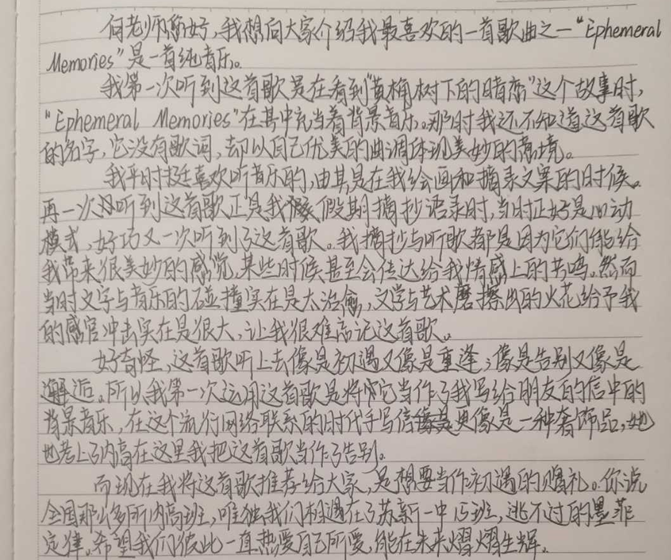 何老师你好，我想向大家介绍我最喜欢的一首歌曲之一"Ephemeral
Memories"是一首纯音乐。
我第一次听到这首歌是在看到"黄桷树下的暗恋"这个故事时，
"Ephemeral Memories"在其中充当着背景音乐。那时我还不知道这首歌
的名字，它没有歌词，却以自己优美的曲调体现美妙的意境。
我平时挺喜欢听音乐的，由其是在我绘画和摘录文案的时候。
再一次听到这首歌正是我假期摘抄语录时，当时正好是心动
模式，好巧又一次听到了这首歌。我摘抄与听歌都是因为它们能给
我带来很美妙的感觉，某些时候甚至会传达给我情感上的共鸣。然而
当时文字与音乐的碰撞实在是太治愈，文学与艺术磨擦出的火花给予我
的感官冲击实在是很大，让我很难忘记这首歌。
好奇怪，这首歌听上去像是初遇又像是重逢；像是告别又像是
邂逅。所以我第一次运用这首歌是将它当作了我写给朋友的信中的
背景音乐，在这个流行网络联系的时代手写信更像是一种奢饰品，她
也考上了内高在这里我把这首歌当作了告别。
而现在我将这首歌推荐给大家，是想要当作初遇的赠礼。你说
全国那么多所内高班，唯独我们相遇在了苏新一中15班，逃不过的墨菲
定律。希望我们彼此一直热爱自己所爱，能在未来熠熠生辉。